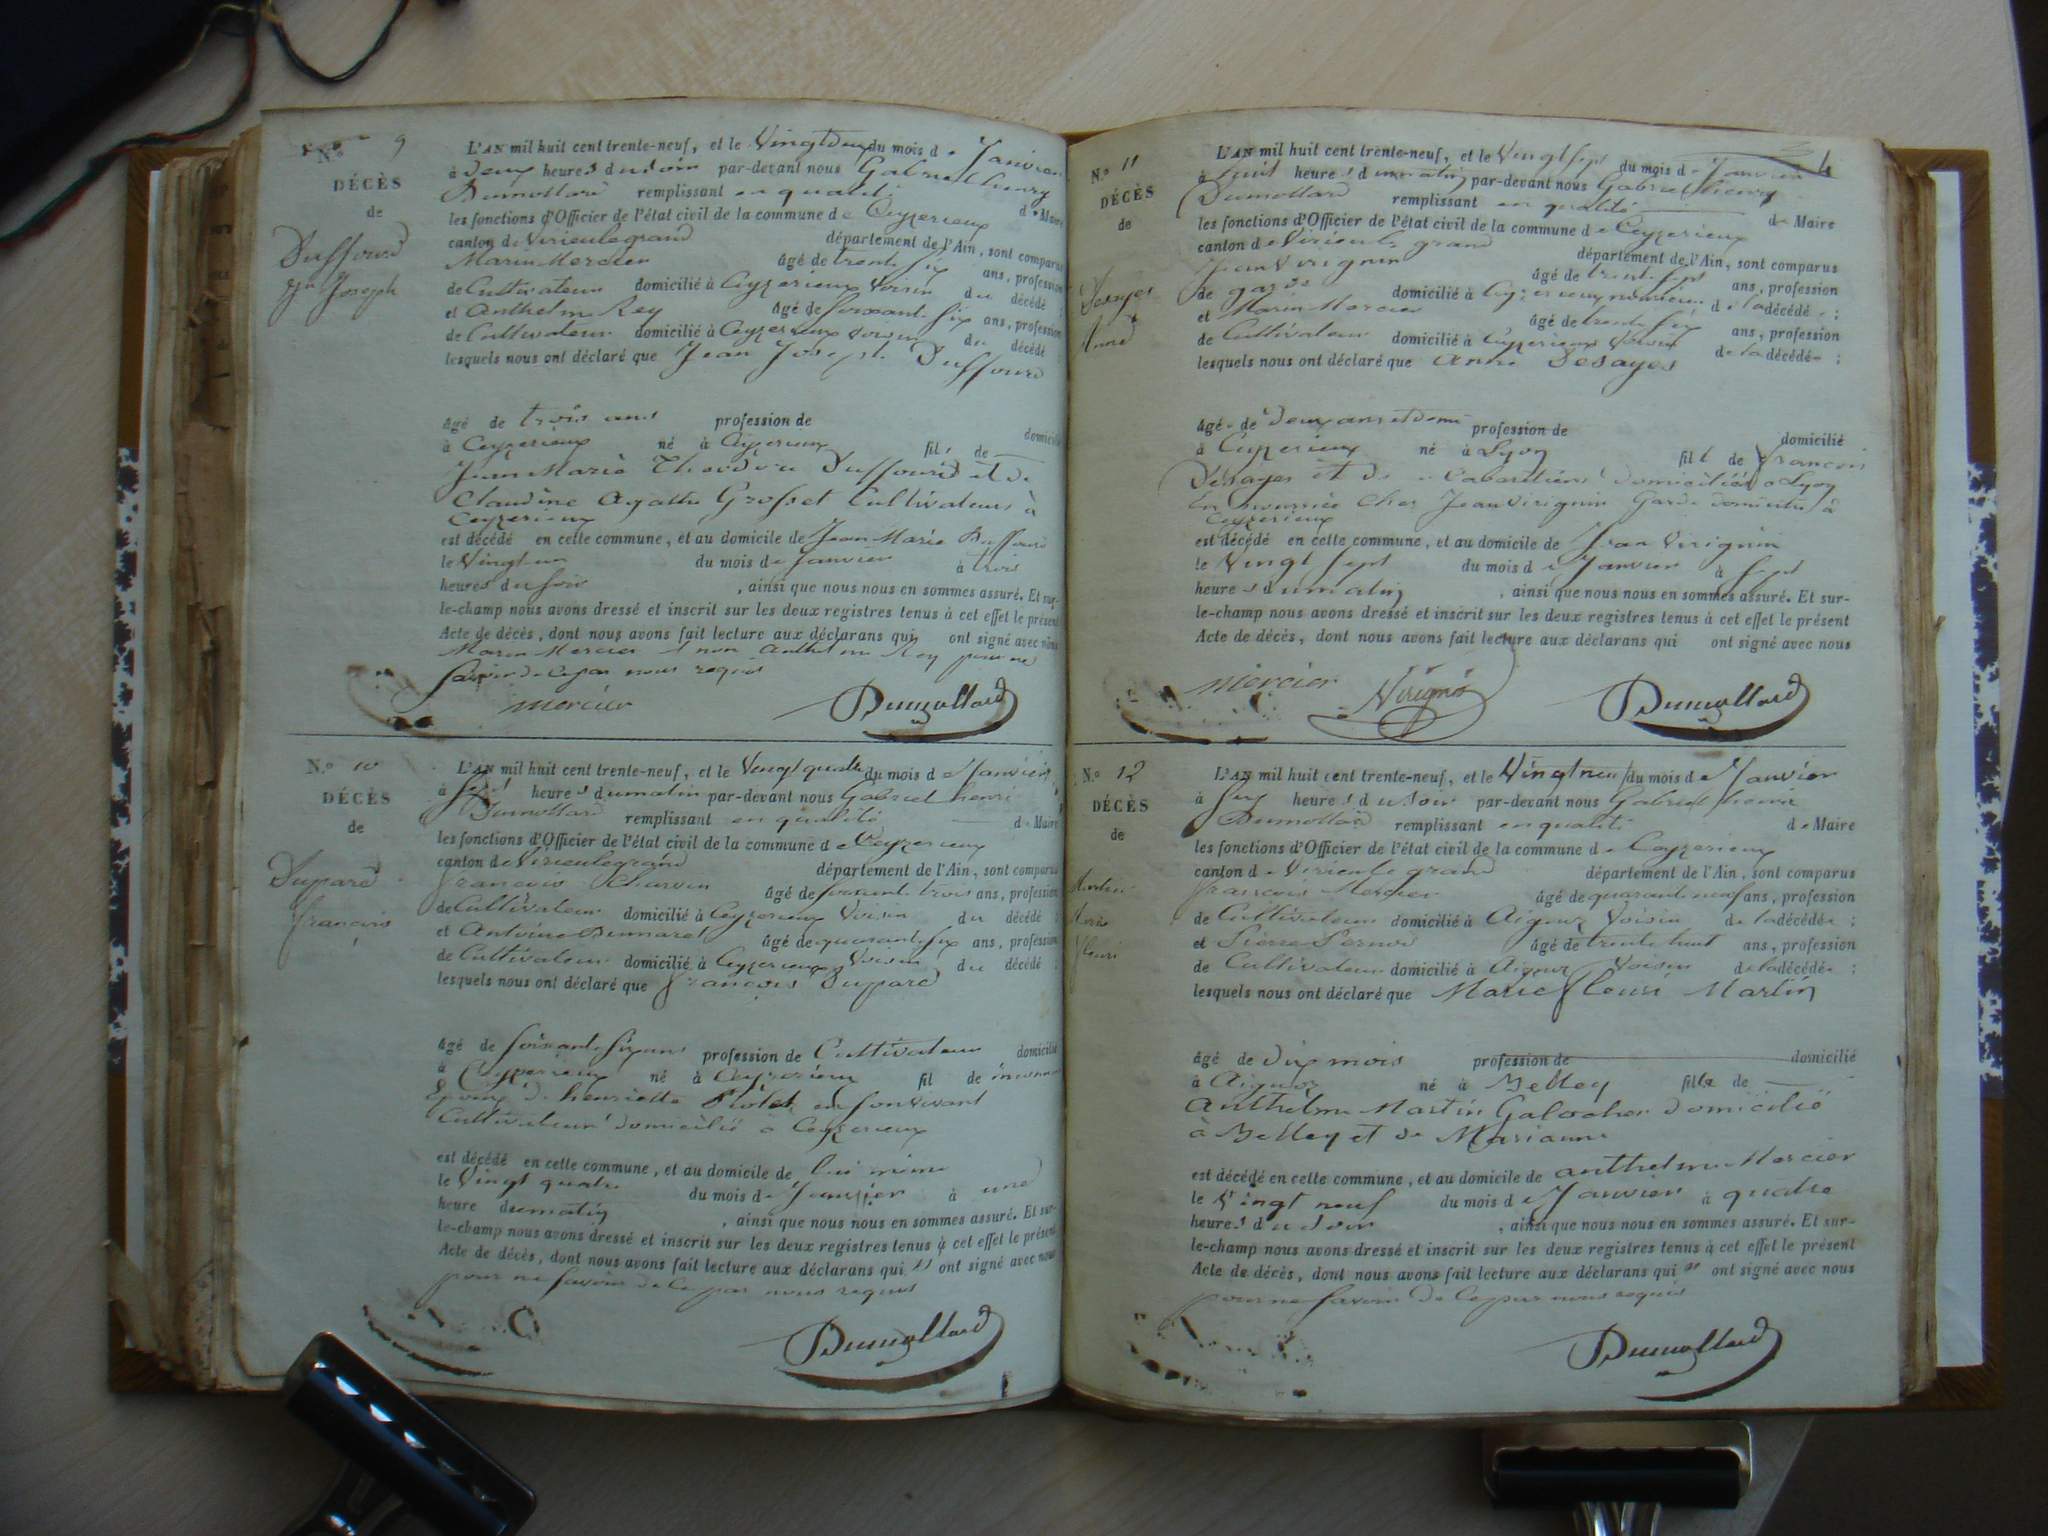 N.o 9
DÉCÈS
de
Duffourd
Jn Joseph
L'AN mil huit cent trente-neuf, et le Vingtdeux du mois de Janvier
à deux heures du soir par-devant nous Gabriel henry
Dumollard remplissant en qualité de Maire
les fonctions d'Officier de l'état civil de la commune de Ceyzerieux
canton de Virieulegrand département de l'Ain, sont comparus
Marin Mercier âgé de trente six ans, profession
de Cultivateur domicilié à Ceyzerieux Voisin du décédé ;
et Anthelm Rey âgé de soixante six ans, profession
de Cultivateur domicilié à Ceyzerieux voisin du décédé
lesquels nous ont déclaré que Jean Joseph Duffourd
âgé de trois ans profession de domicilié
à Ceyzerieux né à Ceyzerieux fils de
Jean Marie Theodore Duffourd et de
Claudine Agathe Grosset Cultivateurs à
Ceyzerieux
est décédé en cette commune, et au domicile de Jean Marie Duffourd
le Vingt un du mois de Janvier à trois
heures du soir , ainsi que nous nous en sommes assuré. Et sur-
le-champ nous avons dressé et inscrit sur les deux registres tenus à cet effet le présent
Acte de décès, dont nous avons fait lecture aux déclarans qui ont signé avec nous
Marin Mercier & non Anthelm Rey pour ne
savoir de ce par nous requis
mercier Dumollard
N.o 10
DÉCÈS
de
Dupard
francois
L'AN mil huit cent trente-neuf, et le Vingt quatre du mois de Janvier
à sept heures du matin par-devant nous Gabriel henri
Dumollard remplissant en qualité de Maire
les fonctions d'Officier de l'état civil de la commune de Ceyzerieux
canton de Virieulegrand département de l'Ain, sont comparus
francois Charvin âgé de soixante trois ans, profession
de Cultivateur domicilié à Ceyzerieux Voisin du décédé ;
et Antoine âgé de quarante six ans, profession
de Cultivateur domicilié à Ceyzerieux Voisin du décédé ;
lesquels nous ont déclaré que francois Dupard
âgé de soixante six ans profession de Cultivateur domicilié
à Ceyzerieux né à Ceyzerieux fil de inconnu
Epoux de henriette en son vivant
Cultivateur domicilié a Ceyzerieux
est décédé en cette commune, et au domicile de lui même
le Vingt quatre du mois de Janvier à une
heure du matin , ainsi que nous nous en sommes assuré. Et sur-
le-champ nous avons dressé et inscrit sur les deux registres tenus à cet effet le présent
Acte de décès, dont nous avons fait lecture aux déclarans qui ont signé avec nous
pour ne savoir de ce par nous requis
Dumollard
4
N.o 11
DÉCÈS
de
Desayes
Anne
L'AN mil huit cent trente-neuf, et le Vingt sept du mois de Janvier
à huit heures du matin par-devant nous Gabriel henry
Dumollard remplissant en qualité de Maire
les fonctions d'Officier de l'état civil de la commune de Ceyzerieux
canton de Virieule grand département de l'Ain, sont comparus
Jean Virignin âgé de trente sept ans, profession
de garde domicilié à Ceyzerieux de la décédée ;
et Marin Mercier âgé de trente six ans, profession
de Cultivateur domicilié à Ceyzerieux Voisin de la décédée ;
lesquels nous ont déclaré que Anne Desayes
âgée de deux ans et demi profession de domicilié
à Ceyzerieux né à Lyon fille de francois
Desayes et de Cabaretiers domiciliés a Lyon
En nourrice chez Jean Virignin Garde domicilié à
Ceyzerieux
est décédé en cette commune, et au domicile de Jean Virignin
le Vingt sept du mois de Janvier à sept
heures du matin , ainsi que nous nous en sommes assuré. Et sur-
le-champ nous avons dressé et inscrit sur les deux registres tenus à cet effet le présent
Acte de décès, dont nous avons fait lecture aux déclarans qui ont signé avec nous
mercier Virignin Dumollard
N.o 12
DÉCÈS
de
Martin
Marie
fleuri
L'AN mil huit cent trente-neuf, et le Vingt neuf du mois de Janvier
à six heures du soir par-devant nous Gabriel henri
Dumollard remplissant en qualité de Maire
les fonctions d'Officier de l'état civil de la commune de Ceyzerieux
canton de Virieule grand département de l'Ain, sont comparus
francois Mercier âgé de quarante neuf ans, profession
de Cultivateur domicilié à Aignoz Voisin de la décédée ;
et Pierre Pernod âgé de trente huit ans, profession
de Cultivateur domicilié à Aignoz Voisin de la décédée ;
lesquels nous ont déclaré que Marie fleuri Martin
âgé de dix mois profession de domicilié
à Aignoz né à Belley fille de
Anthelm Martin Galocher domicilié
à Belley et de Marianne
est décédé en cette commune, et au domicile de anthelm Mercier
le Vingt neuf du mois de Janvier à quatre
heures du soir , ainsi que nous nous en sommes assuré. Et sur-
le-champ nous avons dressé et inscrit sur les deux registres tenus à cet effet le présent
Acte de décès, dont nous avons fait lecture aux déclarans qui ont signé avec nous
pour ne savoir de ce par nous requis
Dumollard